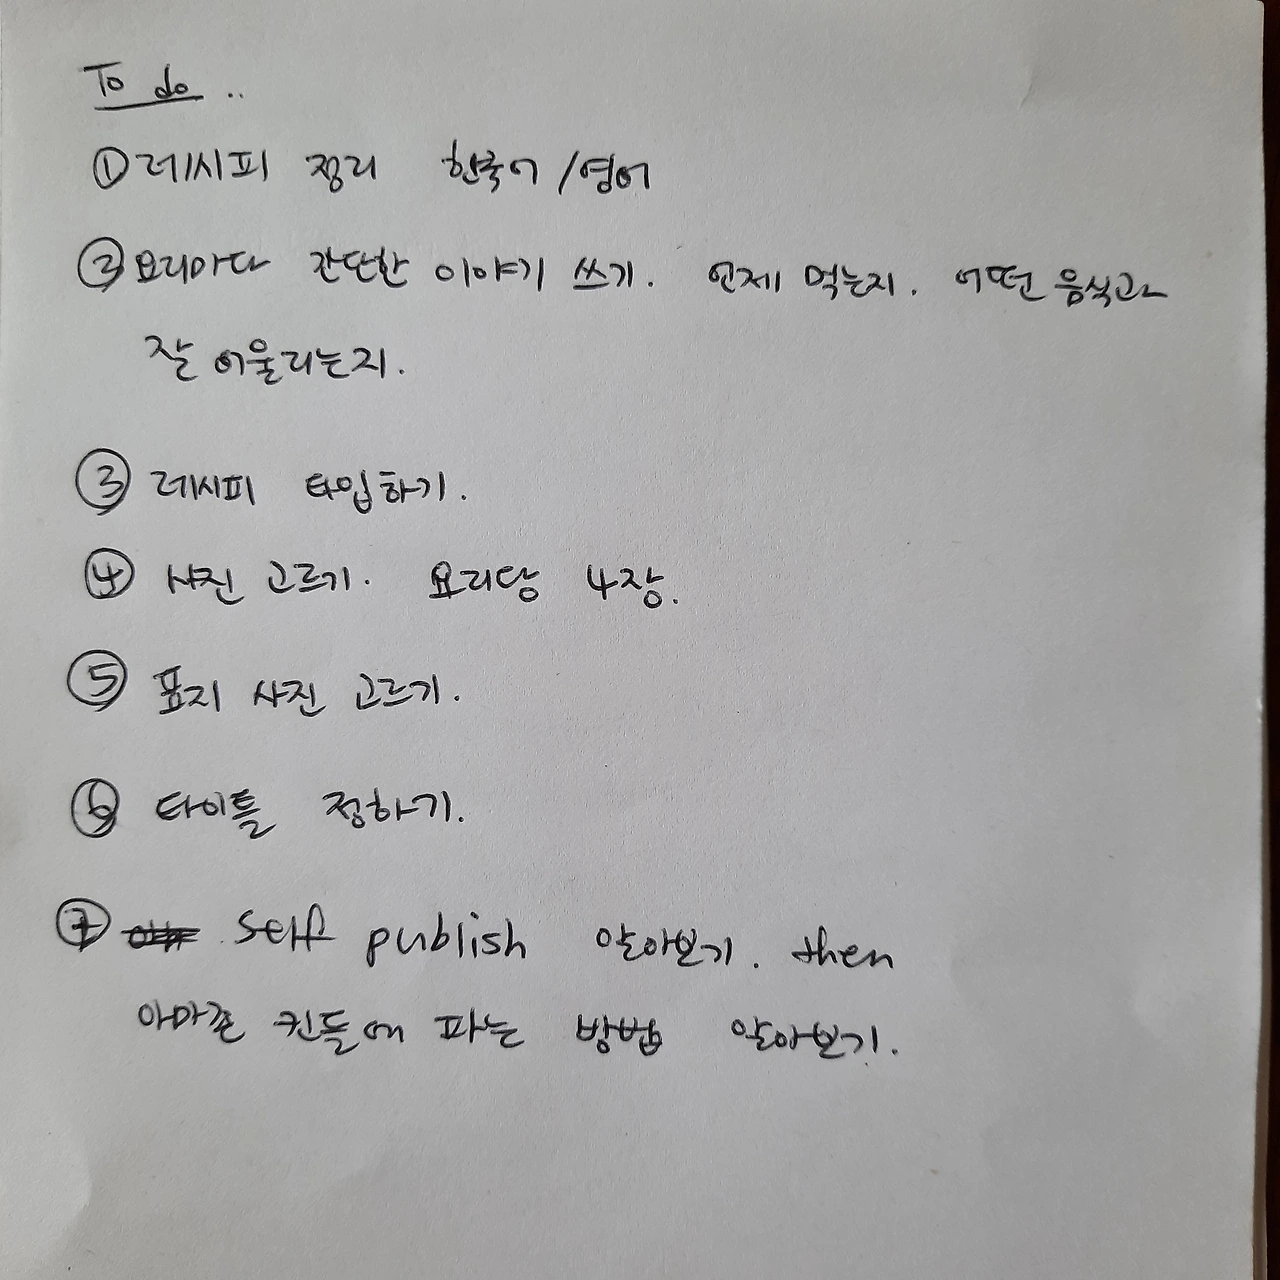 To do ..
① 레시피 정리 한국어 / 영어
② 요리마다 간단한 이야기 쓰기. 언제 먹는지. 어떤 음식과
잘 어울리는지.
③ 레시피 타입하기.
④ 사진 고르기. 요리당 4장.
⑤ 표지 사진 고르기.
⑥ 타이틀 정하기.
⑦ self publish 알아보기. then
아마존 킨들에 파는 방법 알아보기.